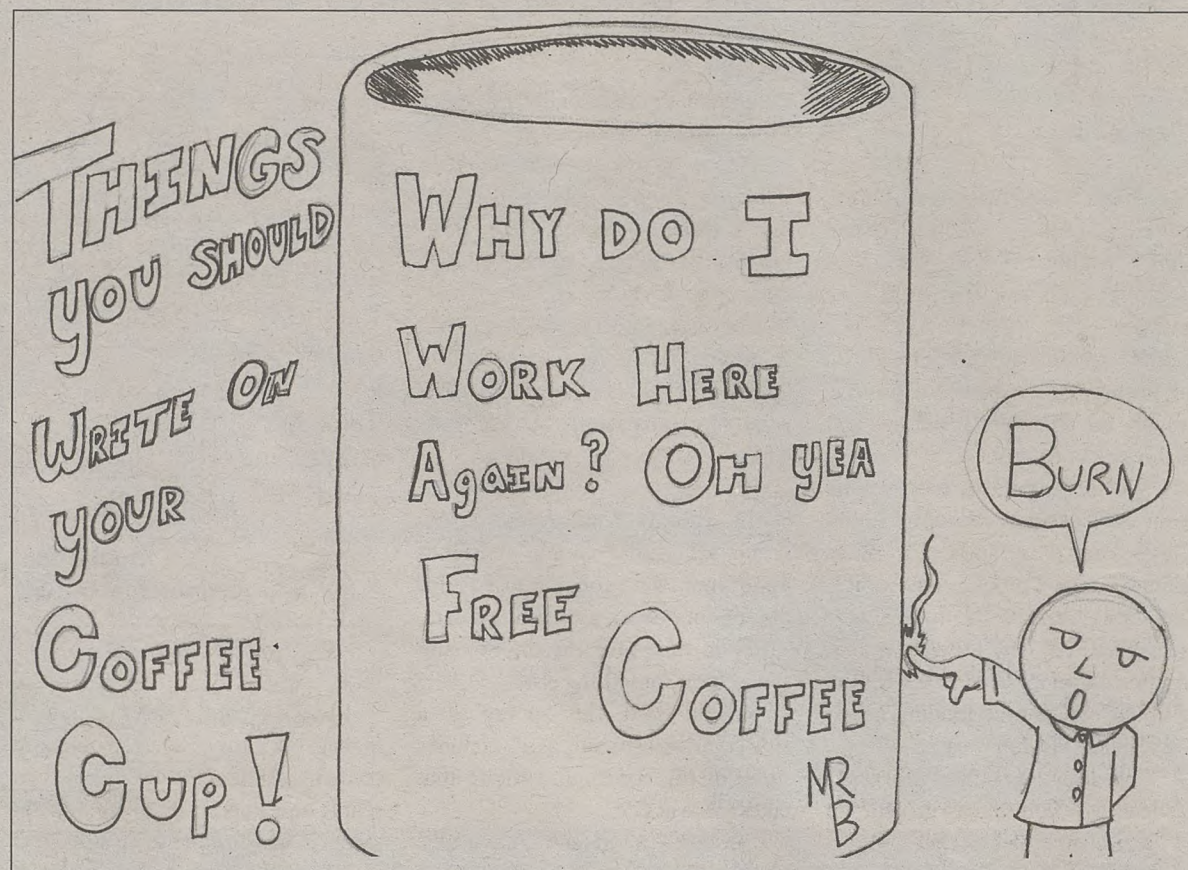 THINGS
YOU SHOULD
WRITE ON
YOUR
COFFEE
CUP!
WHY DO I
WORK HERE
AGAIN? OH YEA
FREE
COFFEE
MR
B
BURN